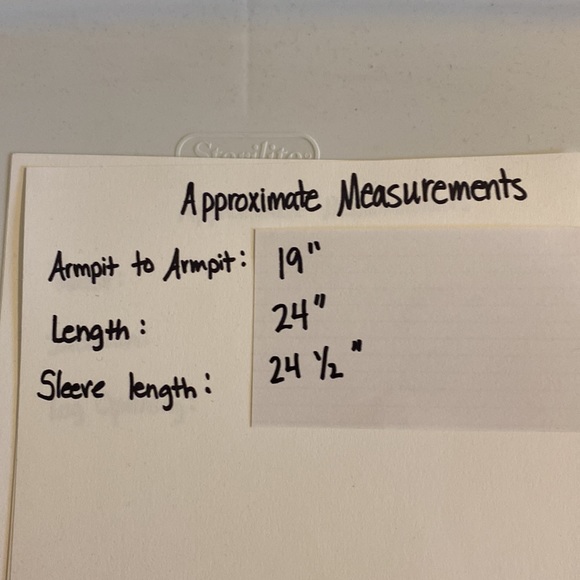 Sterilite
Approximate Measurements
Armpit to Armpit: 19"
Length: 24"
Sleeve length: 24 1/2"